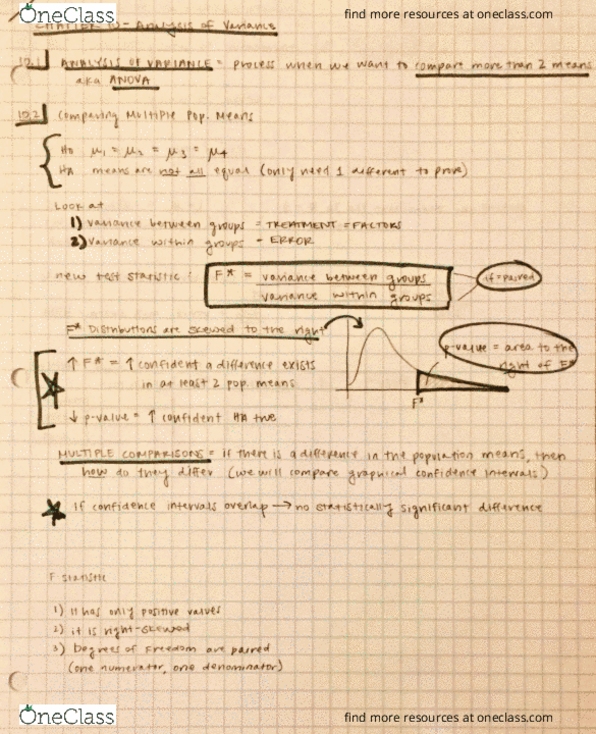 OneClass
find more resources at oneclass.com
CHAPTER 10 - Analysis of Variance
10.1 ANALYSIS OF VARIANCE = process when we want to compare more than 2 means
aka ANOVA
10.2 Comparing Multiple Pop. Means
H0 μ1 = μ2 = μ3 = μ4
HA means are not all equal (only need 1 different to prove)
Look at
1) variance between groups = TREATMENT = FACTORS
2) variance within groups = ERROR
new test statistic: F* = variance between groups
variance within groups
df = paired
F* Distributions are skewed to the right
p-value = area to the
right of F*
↑ F* = ↑ confident a difference exists
in at least 2 pop. means
F*
↓ p-value = ↑ confident HA true
MULTIPLE COMPARISONS = if there is a difference in the population means, then
how do they differ (we will compare graphical confidence intervals)
If confidence intervals overlap → no statistically significant difference
F statistic
1) It has only positive values
2) it is right-skewed
3) Degrees of Freedom are paired
(one numerator, one denominator)
OneClass
find more resources at oneclass.com